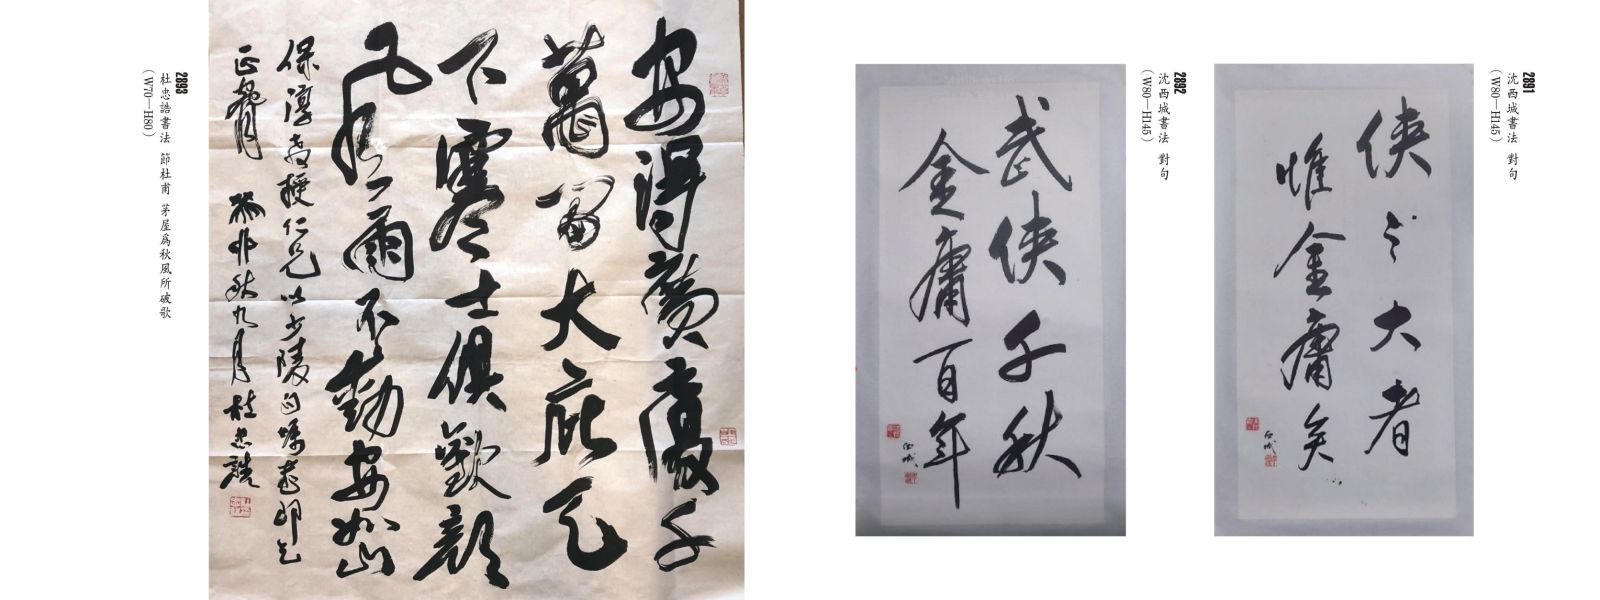 2891
沈西城書法 對句
（W80—H145）
俠之大者
惟金庸矣
西城
2892
沈西城書法 對句
（W80—H145）
武俠千秋
金庸百年
西城
安得廣廈千
萬間大庇天
下寒士俱歡顏
風雨不動安如山
保淳教授仁兄以少陵句屬書即乞
正腕 丙申秋九月杜忠誥
2893
杜忠誥書法 節杜甫 茅屋爲秋風所破歌
（W70—H80）